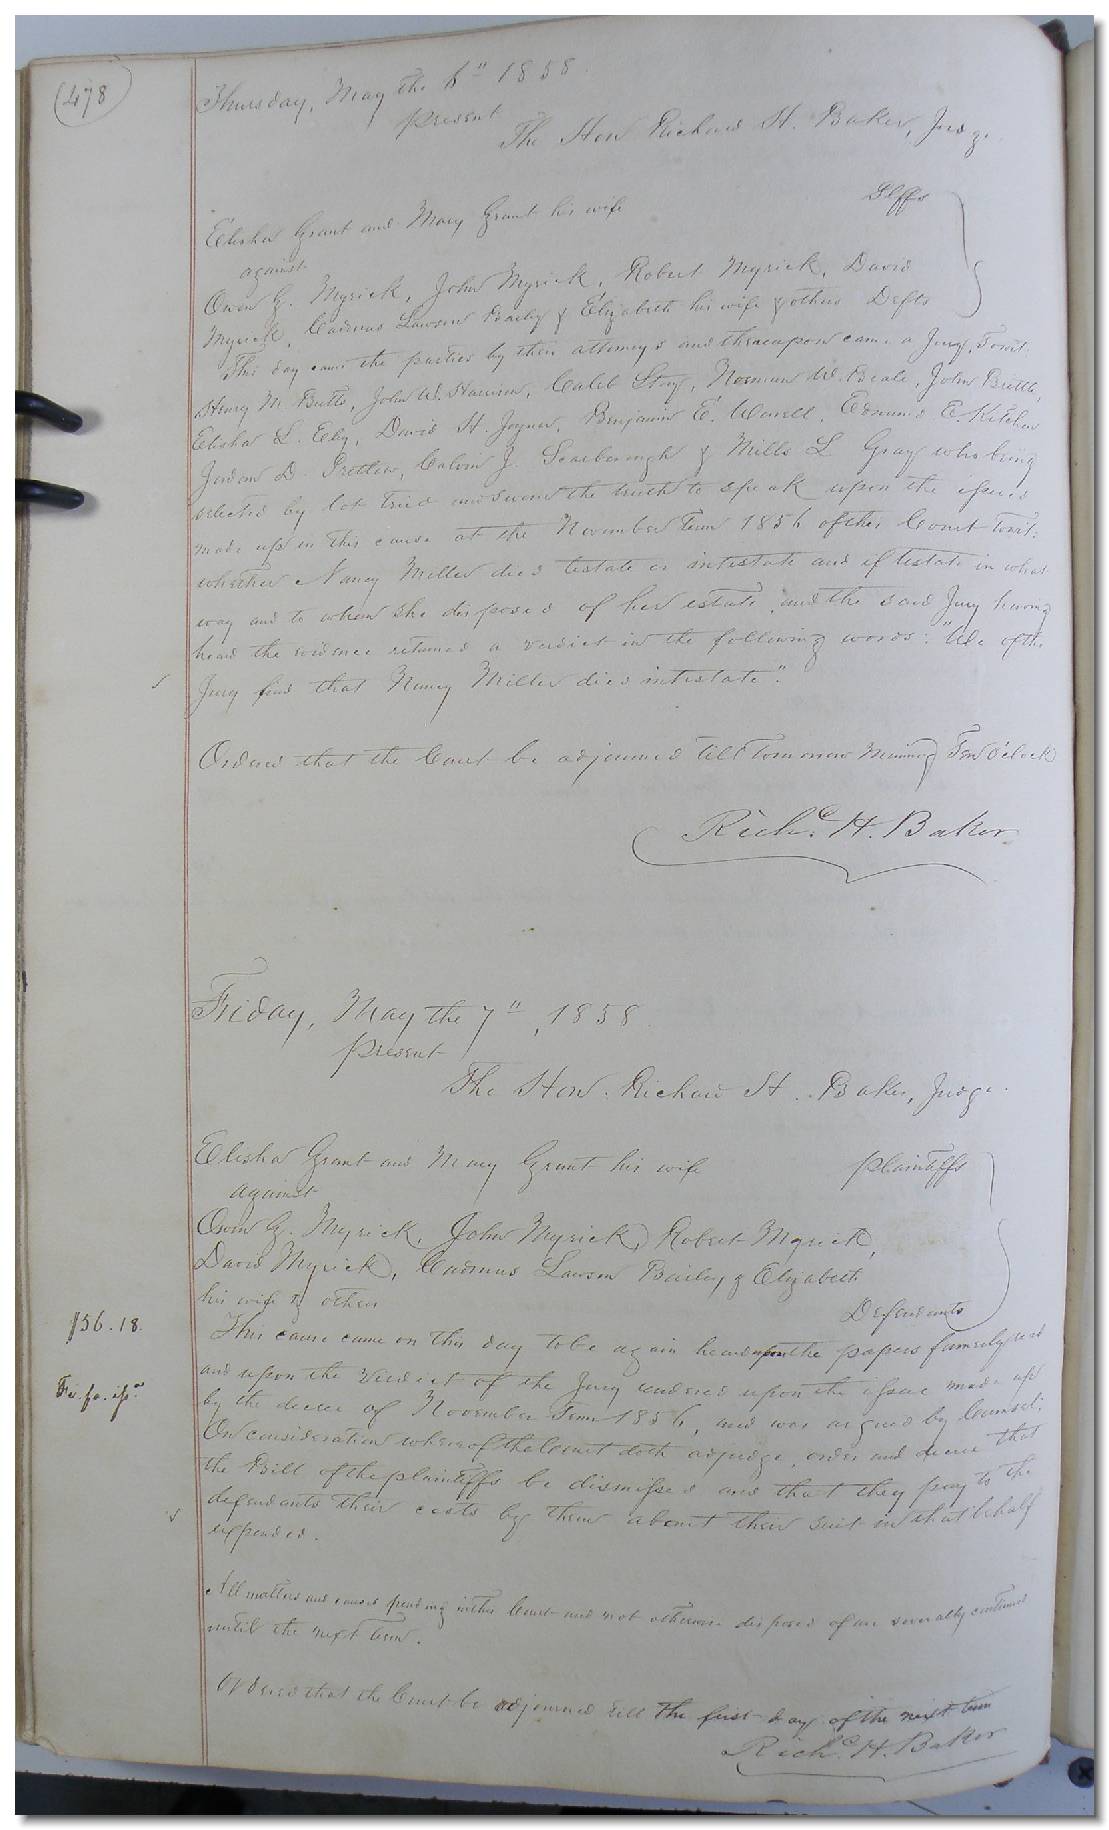 (478)
Thursday, May the 6" 1858.
present
The Hon Richard H. Baker, Judge.
Elisha Grant and Mary Grant his wife Plffs
against
Owen G. Myrick, John Myrick, Robert Myrick, David
Myrick, Cadmus Lawson Baily & Elizabeth his wife & others Defts
This day came the parties by their attorneys and thereupon came a Jury, Towit:
Henry M. Butts, John W. Harrison, Caleb Story, Norman W. Beale, John Brittle,
Elisha L. Eley, David H. Joyner, Benjamin E. Worrell, Edmund E. Kitchen
Judson D. Pretlow, Calvin J. Scarborough & Mills L Gray who being
selected by lot tried and sworn the truth to speak upon the issues
made up in this cause at the November Term 1856 of this Court Towit:
whether Nancy Miller died testate or intestate and if testate in what
way and to whom she disposed of her estate, and the said Jury having
heard the evidence returned a verdict in the following words: "We of the
Jury find that Nancy Miller died intestate".
Ordered that the Court be adjourned till tomorrow Morning Ten O'clock
Richd. H. Baker
Friday, May the 7", 1858
present
The Hon. Richard H. Baker, Judge.
Elisha Grant and Mary Grant his wife plaintiffs
against
Owen G. Myrick, John Myrick, Robert Myrick,
David Myrick, Cadmus Lawson Bailey & Elizabeth
his wife & others Defendants
$56.18.
This cause came on this day to be again heard upon the papers formerly read
and upon the Verdict of the Jury rendered upon the issue made up
Fi. fa. isd
by the decree of November Term 1856, and was argued by Counsel:
On consideration whereof the Court doth adjudge, order and decree that
the Bill of the plaintiffs be dismissed and that they pay to the
defendants their costs by them about their suit in that behalf
expended.
All matters and causes pending in this Court and not otherwise disposed of are severally continued
until the next term.
Ordered that the Court be adjourned till the first day of the next term
Richd. H. Baker